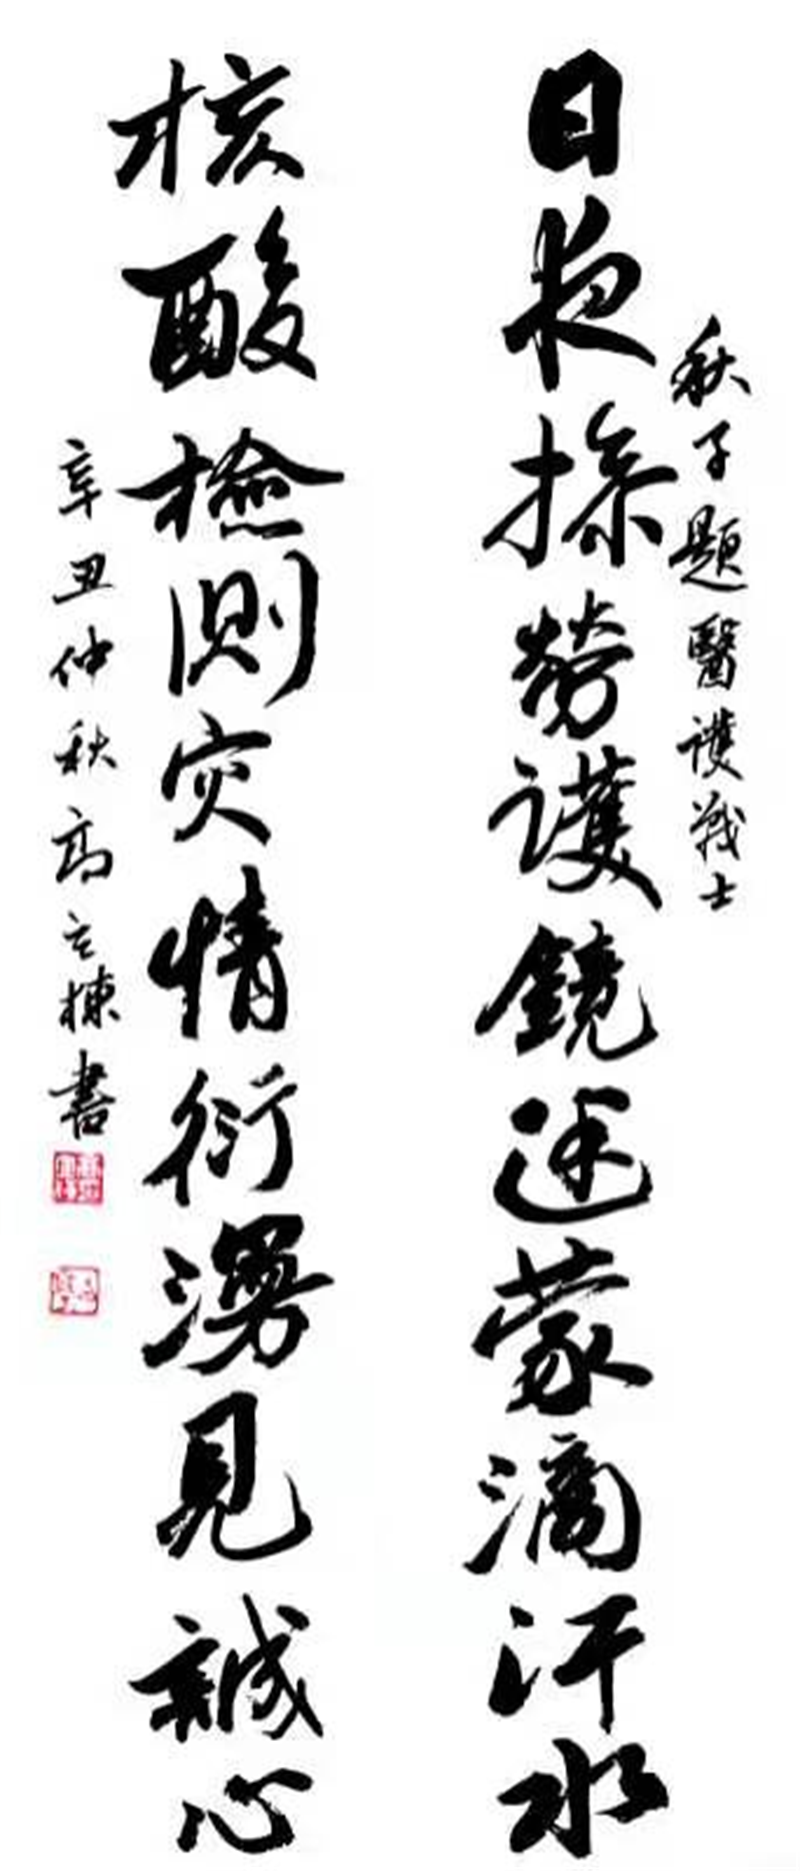 秋子題醫護戰士
日夜操勞護鏡迷蒙滴汗水
核酸檢測灾情衍湧見誠心
辛丑仲秋高立棟書